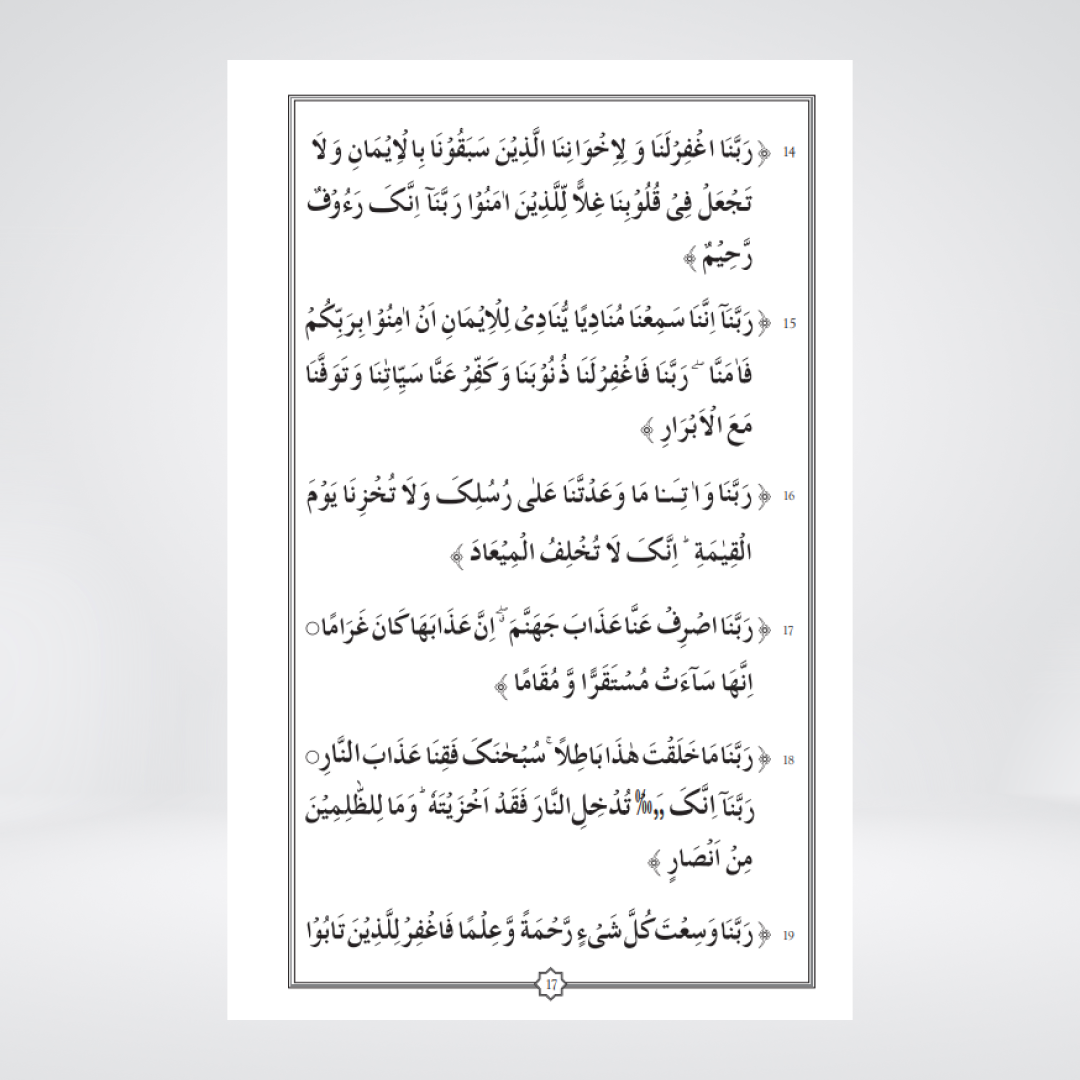 14 ﴿ رَبَّنَا اغْفِرْلَنَا وَ لِاِخْوَانِنَا الَّذِيْنَ سَبَقُوْنَا بِالْاِيْمَانِ وَ لَا
تَجْعَلْ فِيْ قُلُوْبِنَا غِلًّا لِّلَّذِيْنَ اٰمَنُوْا رَبَّنَآ اِنَّکَ رَءُوْفٌ
رَّحِيْمٌ ﴾
15 ﴿ رَبَّنَآ اِنَّنَا سَمِعْنَا مُنَادِيًا يُّنَادِيْ لِلْاِيْمَانِ اَنْ اٰمِنُوْا بِرَبِّكُمْ
فَاٰمَنَّا ۖ رَبَّنَا فَاغْفِرْلَنَا ذُنُوْبَنَا وَكَفِّرْ عَنَّا سَيِّاٰتِنَا وَتَوَفَّنَا
مَعَ الْاَبْرَارِ ﴾
16 ﴿ رَبَّنَا وَاٰتِنَا مَا وَعَدْتَّنَا عَلٰى رُسُلِکَ وَلَا تُخْزِنَا يَوْمَ
الْقِيٰمَةِ ؕ اِنَّکَ لَا تُخْلِفُ الْمِيْعَادَ ﴾
17 ﴿ رَبَّنَا اصْرِفْ عَنَّا عَذَابَ جَهَنَّمَ ۖۗ اِنَّ عَذَابَهَا كَانَ غَرَامًا ○
اِنَّهَا سَآءَتْ مُسْتَقَرًّا وَّ مُقَامًا ﴾
18 ﴿ رَبَّنَا مَا خَلَقْتَ هٰذَا بَاطِلًا ۚ سُبْحٰنَکَ فَقِنَا عَذَابَ النَّارِ ○
رَبَّنَآ اِنَّکَ تُدْخِلِ النَّارَ فَقَدْ اَخْزَيْتَهٗ ؕ وَمَا لِلظّٰلِمِيْنَ
مِنْ اَنْصَارٍ ﴾
19 ﴿ رَبَّنَا وَسِعْتَ كُلَّ شَيْءٍ رَّحْمَةً وَّ عِلْمًا فَاغْفِرْ لِلَّذِيْنَ تَابُوْا
17